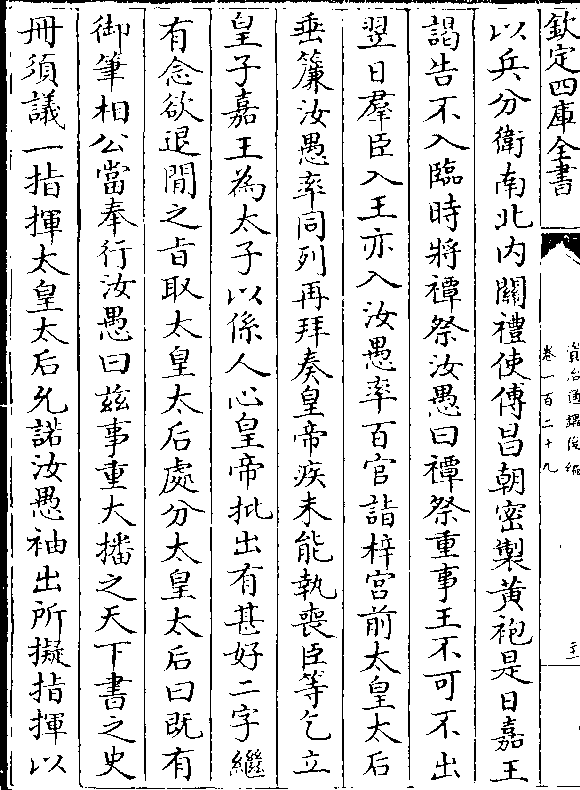 欽定四庫全書
資治通鑑後編
卷一百二十九
以兵分衛南北内關禮使傅昌朝密製黄袍是日嘉王
謁告不入臨時將禫祭汝愚曰禫祭重事王不可不出
翌日羣臣入王亦入汝愚率百官詣梓宫前太皇太后
垂簾汝愚率同列再拜奏皇帝疾未能執喪臣等乞立
皇子嘉王為太子以係人心皇帝批出有甚好二字繼
有念欲退閒之㫖取太皇太后處分太皇太后曰既有
御筆相公當奉行汝愚曰兹事重大播之天下書之史
冊須議一指揮太皇太后允諾汝愚袖出所擬指揮以